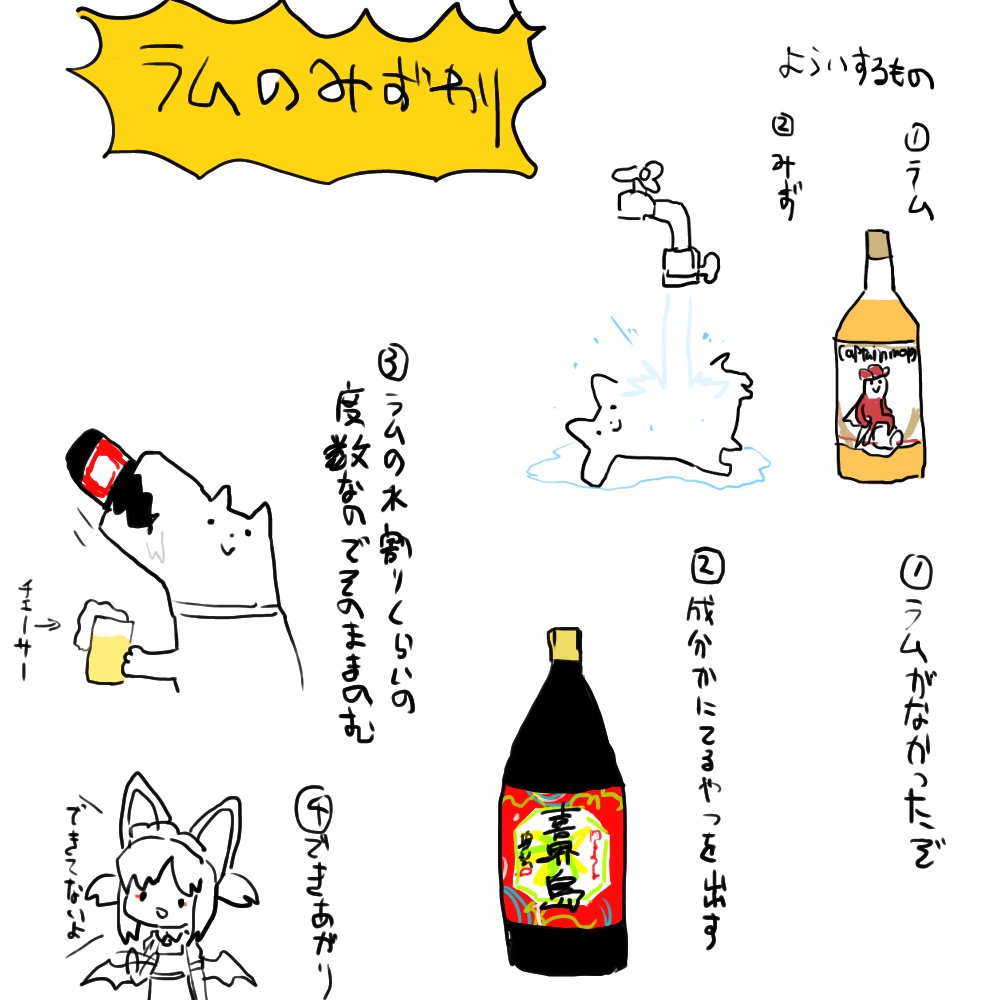 ラムのみずわり
よういするもの
①ラム
②みず
Captain mor
①ラムがなかったぞ
②成分がにてるやつを出す
喜界島
③ラムの水割りくらいの
度数なのでそのままのむ
チェーサー→
④できあがり
できてないよ